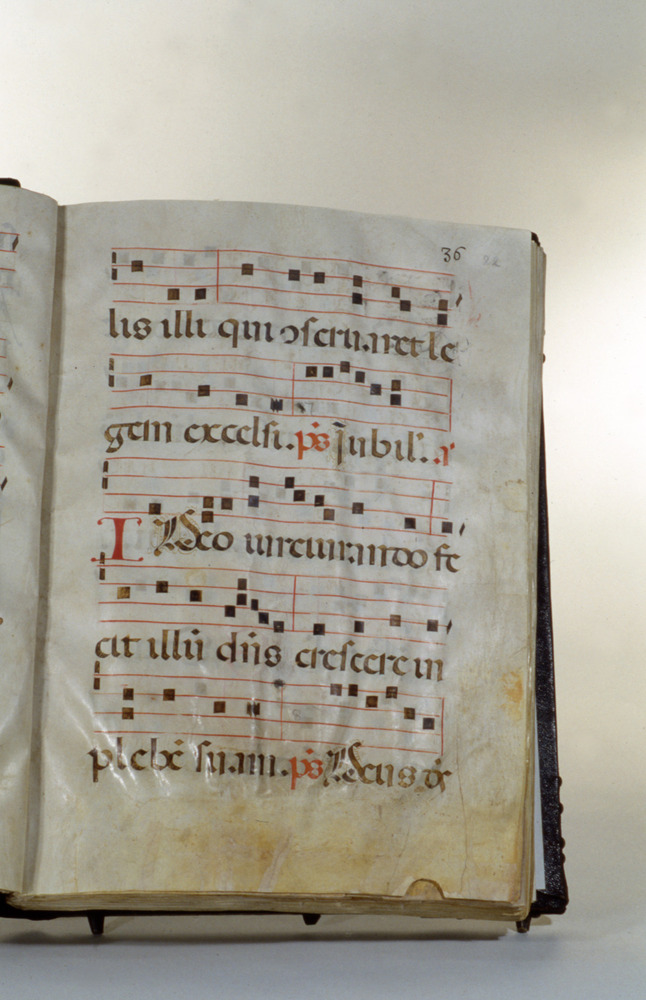 36 22
lis illi qui ↄseruaret le
gem excelsi. ps̄ Jubil'. a'
IDeo iureiurando fe
cit illū dn̄s crescere in
plebē suam. ps̄ Deus